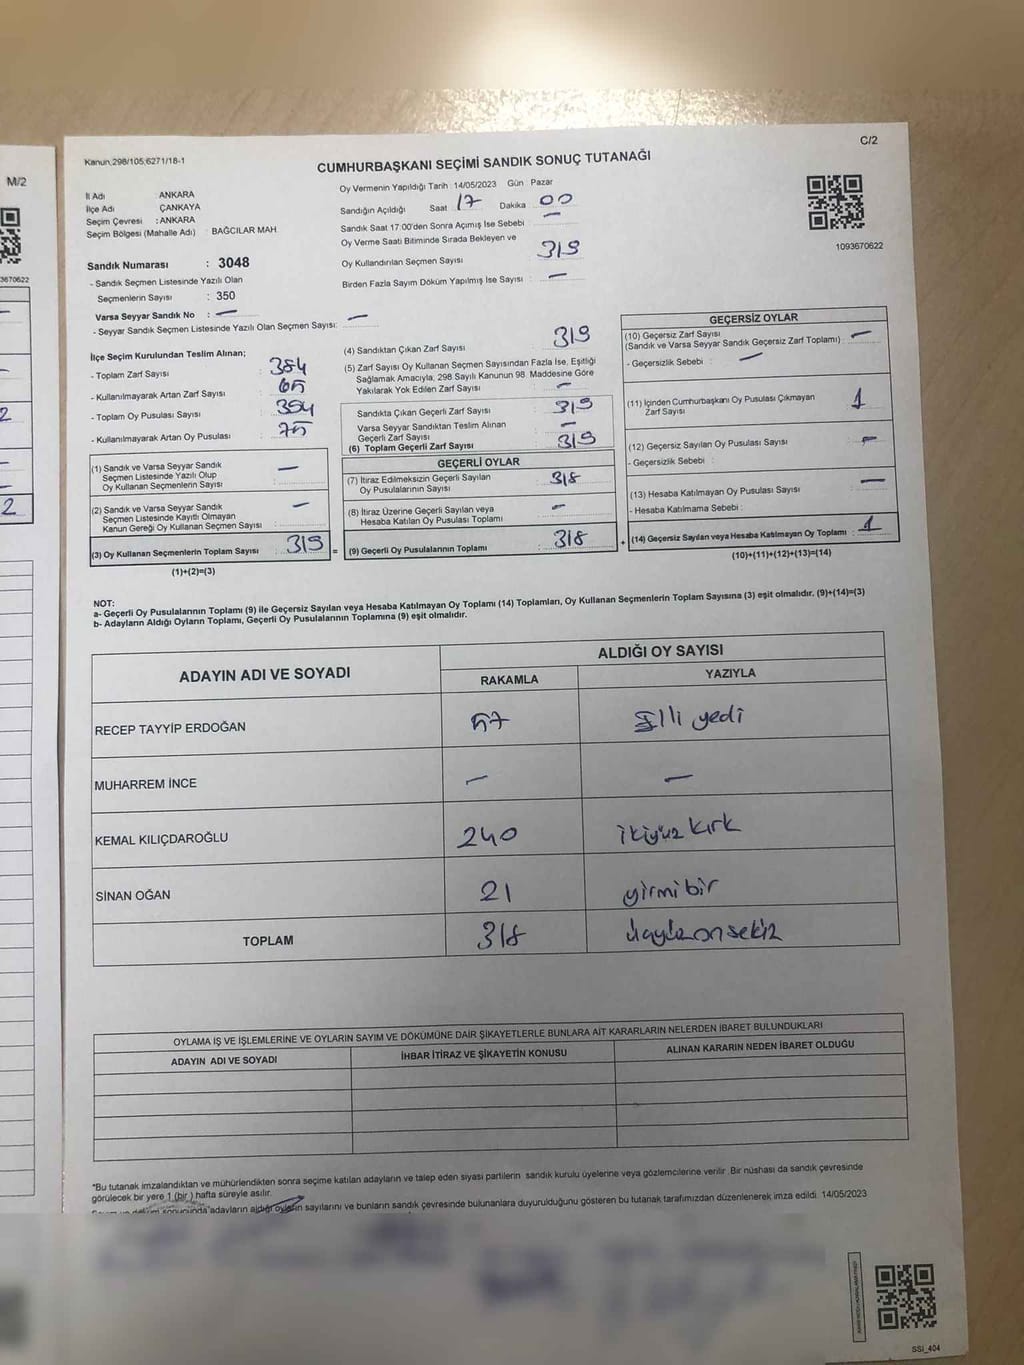 C/2
Kanun:298/105;6271/18-1
CUMHURBAŞKANI SEÇİMİ SANDIK SONUÇ TUTANAĞI
M/2
İl Adı ANKARA
İlçe Adı ÇANKAYA
Seçim Çevresi : ANKARA
Seçim Bölgesi (Mahalle Adı) : BAĞCILAR MAH.
Oy Vermenin Yapıldığı Tarih 14/05/2023 Gün Pazar
Sandığın Açıldığı Saat 17 Dakika 00
Sandık Saat 17:00'den Sonra Açımış İse Sebebi : —
Oy Verme Saati Bitiminde Sırada Bekleyen ve
Oy Kullandırılan Seçmen Sayısı : 319
Birden Fazla Sayım Döküm Yapılmış İse Sayısı : —
1093670622
3670622
Sandık Numarası : 3048
- Sandık Seçmen Listesinde Yazılı Olan
Seçmenlerin Sayısı : 350
Varsa Seyyar Sandık No : —
- Seyyar Sandık Seçmen Listesinde Yazılı Olan Seçmen Sayısı: —
İlçe Seçim Kurulundan Teslim Alınan;
- Toplam Zarf Sayısı : 384
- Kullanılmayarak Artan Zarf Sayısı : 65
- Toplam Oy Pusulası Sayısı : 394
- Kullanılmayarak Artan Oy Pusulası : 75
(1) Sandık ve Varsa Seyyar Sandık
Seçmen Listesinde Yazılı Olup
Oy Kullanan Seçmenlerin Sayısı : —
(2) Sandık ve Varsa Seyyar Sandık
Seçmen Listesinde Kayıtlı Olmayan
Kanun Gereği Oy Kullanan Seçmen Sayısı : —
(3) Oy Kullanan Seçmenlerin Toplam Sayısı : 319
(1)+(2)=(3)
=
(4) Sandıktan Çıkan Zarf Sayısı : 319
(5) Zarf Sayısı Oy Kullanan Seçmen Sayısından Fazla İse, Eşitliği
Sağlamak Amacıyla, 298 Sayılı Kanunun 98. Maddesine Göre
Yakılarak Yok Edilen Zarf Sayısı : —
Sandıkta Çıkan Geçerli Zarf Sayısı : 319
Varsa Seyyar Sandıktan Teslim Alınan
Geçerli Zarf Sayısı : —
(6) Toplam Geçerli Zarf Sayısı : 319
GEÇERLİ OYLAR
(7) İtiraz Edilmeksizin Geçerli Sayılan
Oy Pusulalarının Sayısı : 318
(8) İtiraz Üzerine Geçerli Sayılan veya
Hesaba Katılan Oy Pusulası Toplamı : —
(9) Geçerli Oy Pusulalarının Toplamı : 318
+
GEÇERSİZ OYLAR
(10) Geçersiz Zarf Sayısı
(Sandık ve Varsa Seyyar Sandık Geçersiz Zarf Toplamı) : —
- Geçersizlik Sebebi : —
(11) İçinden Cumhurbaşkanı Oy Pusulası Çıkmayan
Zarf Sayısı : 1
(12) Geçersiz Sayılan Oy Pusulası Sayısı : —
- Geçersizlik Sebebi :
(13) Hesaba Katılmayan Oy Pusulası Sayısı : —
- Hesaba Katılmama Sebebi :
(14) Geçersiz Sayılan veya Hesaba Katılmayan Oy Toplamı : 1
(10)+(11)+(12)+(13)=(14)
NOT:
a- Geçerli Oy Pusulalarının Toplamı (9) ile Geçersiz Sayılan veya Hesaba Katılmayan Oy Toplamı (14) Toplamları, Oy Kullanan Seçmenlerin Toplam Sayısına (3) eşit olmalıdır. (9)+(14)=(3)
b- Adayların Aldığı Oyların Toplamı, Geçerli Oy Pusulalarının Toplamına (9) eşit olmalıdır.
ADAYIN ADI VE SOYADI ALDIĞI OY SAYISI
RAKAMLA YAZIYLA
RECEP TAYYİP ERDOĞAN 57 Elli yedi
MUHARREM İNCE — —
KEMAL KILIÇDAROĞLU 240 ikiyüz kırk
SİNAN OĞAN 21 yirmi bir
TOPLAM 318 üçyüzonsekiz
OYLAMA İŞ VE İŞLEMLERİNE VE OYLARIN SAYIM VE DÖKÜMÜNE DAİR ŞİKAYETLERLE BUNLARA AİT KARARLARIN NELERDEN İBARET BULUNDUKLARI
ADAYIN ADI VE SOYADI İHBAR İTİRAZ VE ŞİKAYETİN KONUSU ALINAN KARARIN NEDEN İBARET OLDUĞU
*Bu tutanak imzalandıktan ve mühürlendikten sonra seçime katılan adayların ve talep eden siyasi partilerin sandık kurulu üyelerine veya gözlemcilerine verilir. Bir nüshası da sandık çevresinde
görülecek bir yere 1 (bir) hafta süreyle asılır.
sonucunda adayların aldığı oyların sayılarını ve bunların sandık çevresinde bulunanlara duyurulduğunu gösteren bu tutanak tarafımızdan düzenlenerek imza edildi. 14/05/2023
SSİ_404
2
2